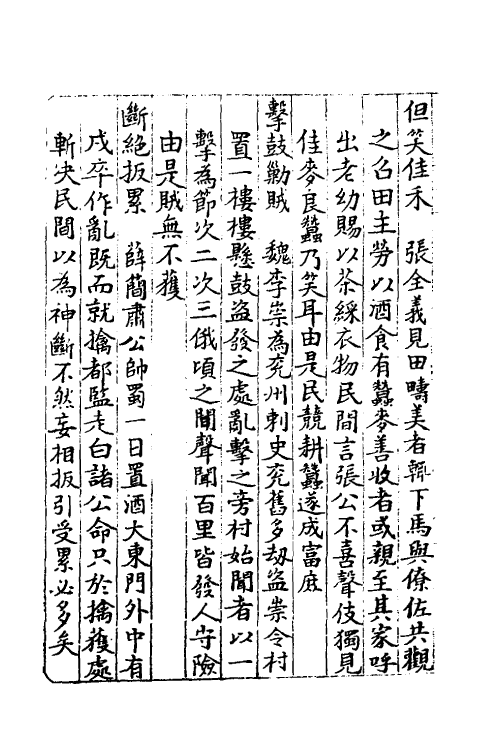 但笑佳禾　張全義見田疇美者輒下馬與僚佐共觀
之召田主勞以酒食有蠶麥善收者或親至其家呼
出老幼賜以茶綵衣物民間言張公不喜聲伎獨見
佳麥良蠶乃笑耳由是民競耕蠶遂成富庶
擊鼓勦賊　魏李崇為兖州刺史兖舊多刼盜崇令村
置一樓樓懸鼓盜發之處亂擊之旁村始聞者以一
擊為節次二次三俄頃之間聲聞百里皆發人守險
由是賊無不獲
斷絕扳累　薛簡肅公帥蜀一日置酒大東門外中有
戍卒作亂既而就擒都監走白諸公命只於擒獲處
斬决民間以為神斷不然妄相扳引受累必多矣